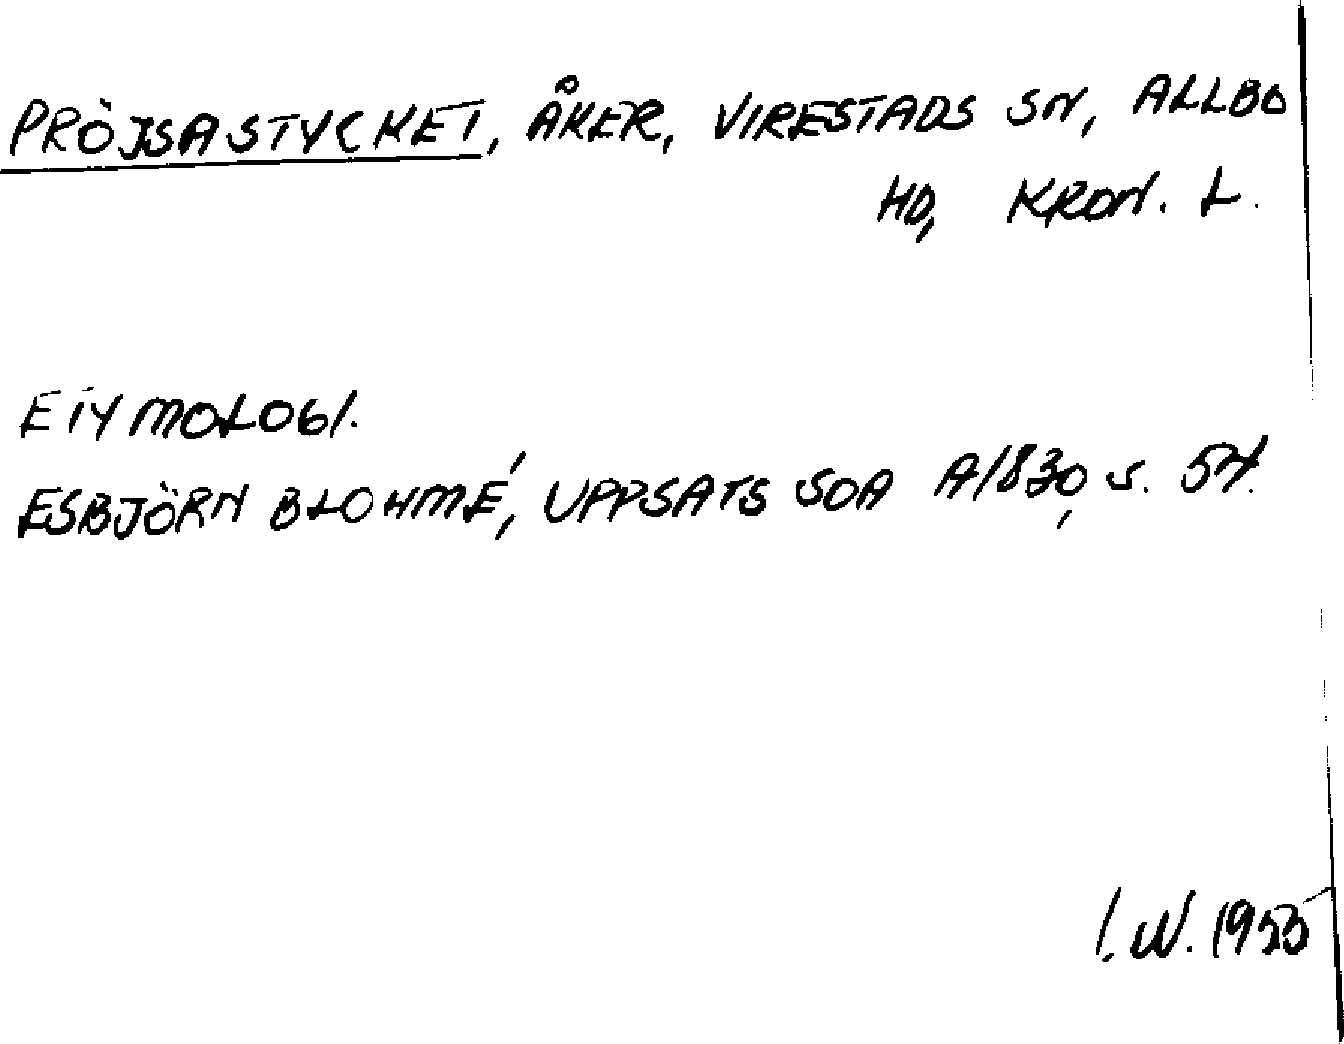 PRÖJSASTYCKET, ÅKER, VIRESTADS SN, ALLBO
HD, KRON. L.
ETYMOLOGI.
ESBJÖRN BLOHMÉ, UPPSATS SOA A/830, S. 54.
I.W. 1955